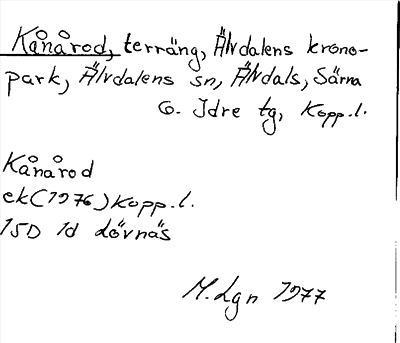 Kånårod, terräng, Älvdalens krono-
park, Älvdalens sn, Älvdals, Särna
o. Idre tg, Kopp.l.
Kånårod
ek(1976) Kopp.l.
15D 1d Lövnäs
M.Lgn 1977